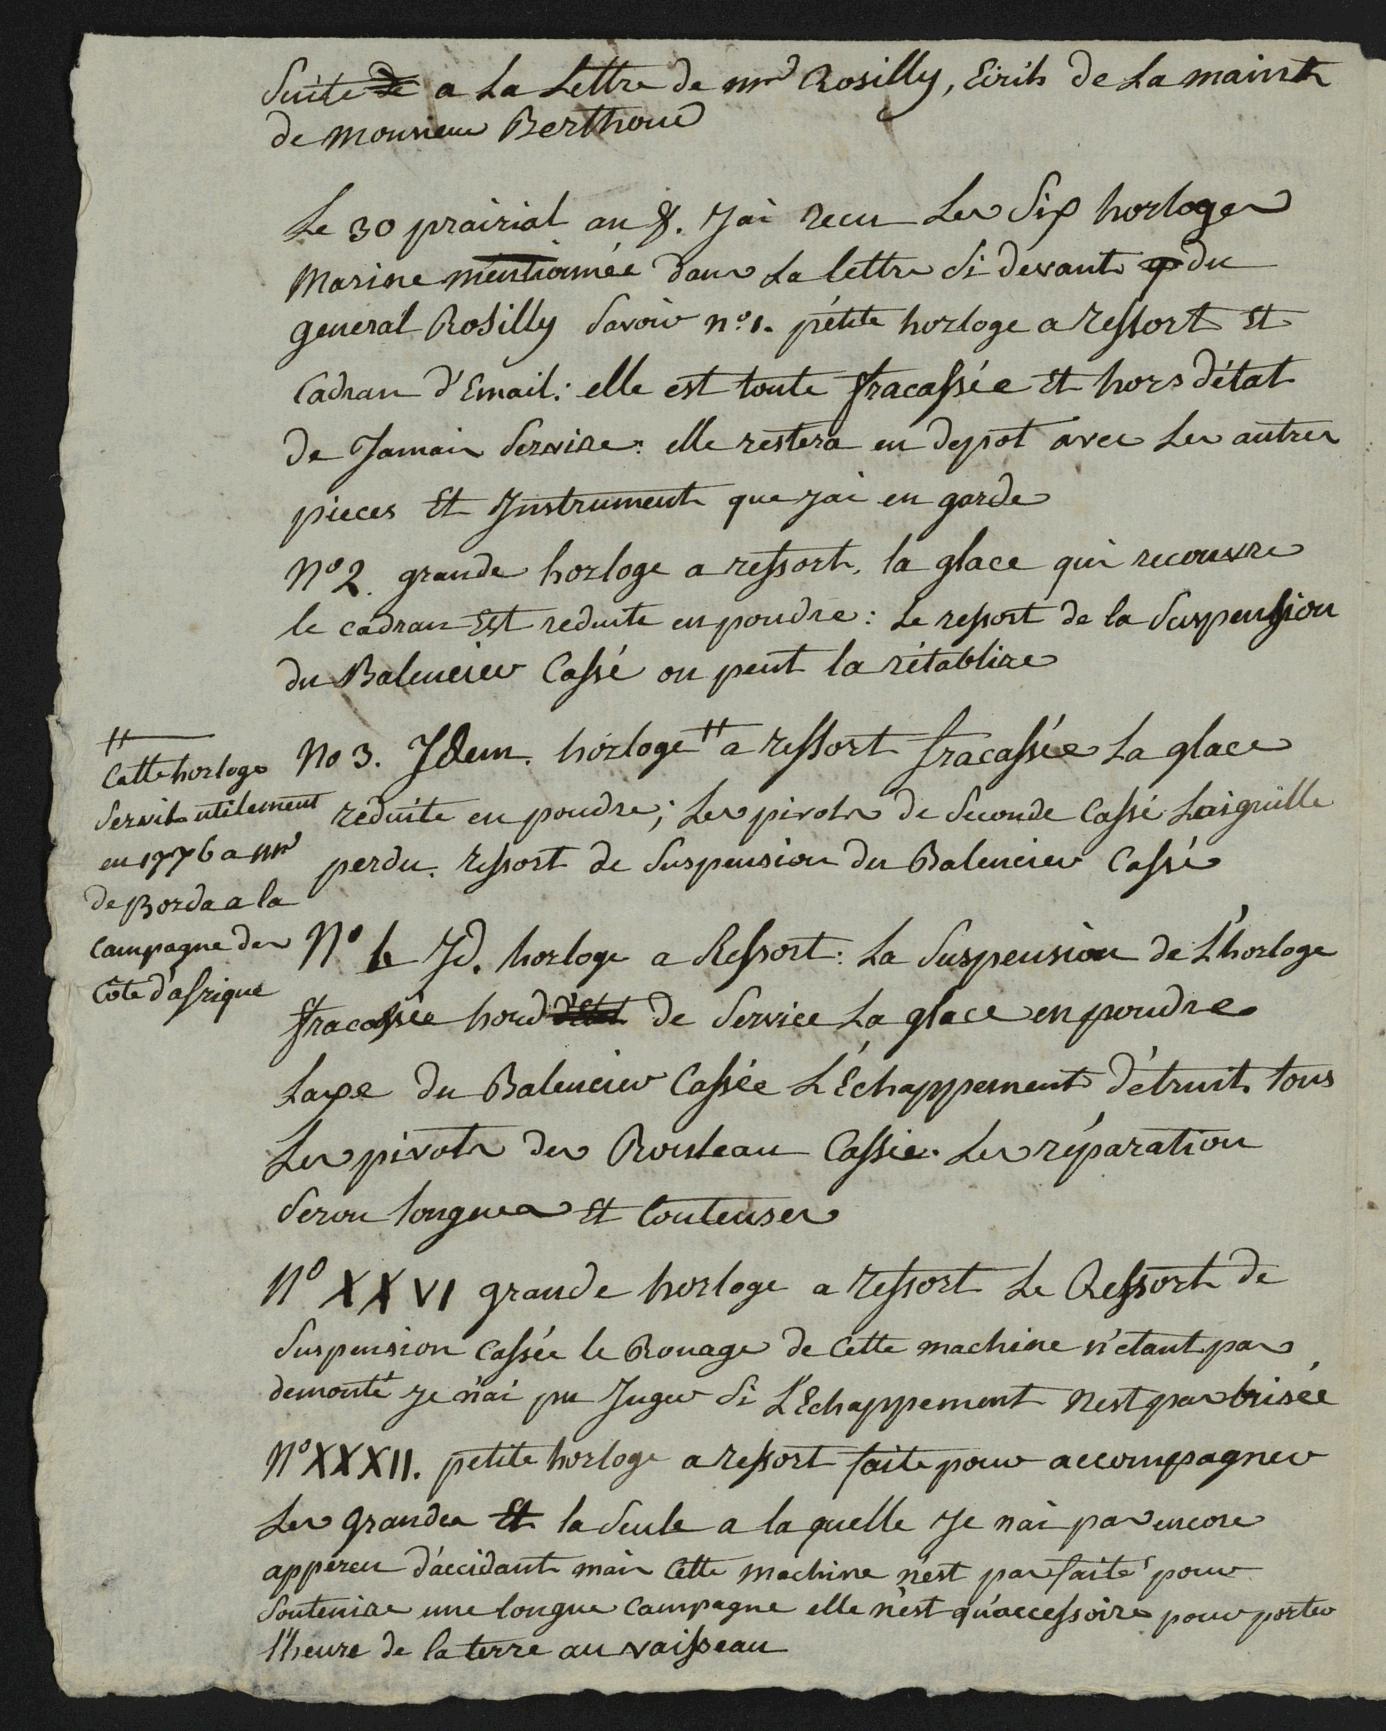 Suite de a La Lettre de mr Rosilly, Ecrits de La maint
de monsieur Berthoud
Le 30 prairial an 8. Jai recu Les Six horloges
Marine mentionnée dans La lettre Si devant du
general Rosilly Savoir no 1. pétite horloge a ressort Et
Cadran d'Email: elle est toute fracassée Et hors d'état
de Jamais Servire: elle restera en depot avec Les autres
pieces Et Instrument que Jai en garde
No 2. grande horloge a ressort, la glace qui recouvre
le cadran Est reduite en poudre: Le ressort de la Suspenssion
du Balencier Cassé on peut la rétablire
No 3. Idem. horloge # a ressort fracassée La glace
reduite en poudre; Les pivots de Seconde Cassé Laiguille
perdu. ressort de Suspension du Balencier Cassé
#
Cette horloge
Servit utilement
en 1776 a mr
de Borda a la
Campagne des
Côte d'afrique
No 6 Id. horloge a Ressort: La Suspension de L'horloge
fracassée hord d'Etat de Service La glace en poudre
Laxe du Balencier Cassée L'Échappement détruit tous
Les pivots des Rouleau Cassie. Les réparation
Seron longues Et Couteuses
No XXVI grande horloge a ressort Le Ressort de
Suspension Cassée le Rouage de Cette machine n'etant pas
demonté Je n'ai pu Juger Si L'Echappement Nest pas brisée
No XXXII. petite horloge a ressort faite pour accompagner
Les grandes Et la Seule a la quelle Je nai pas encore
apperçu d'accidant mais Cette machine n'est pas faite pour
Soutenire une longue Campagne elle n'est qu'accessoire pour porter
l'heure de la terre au vaisseau